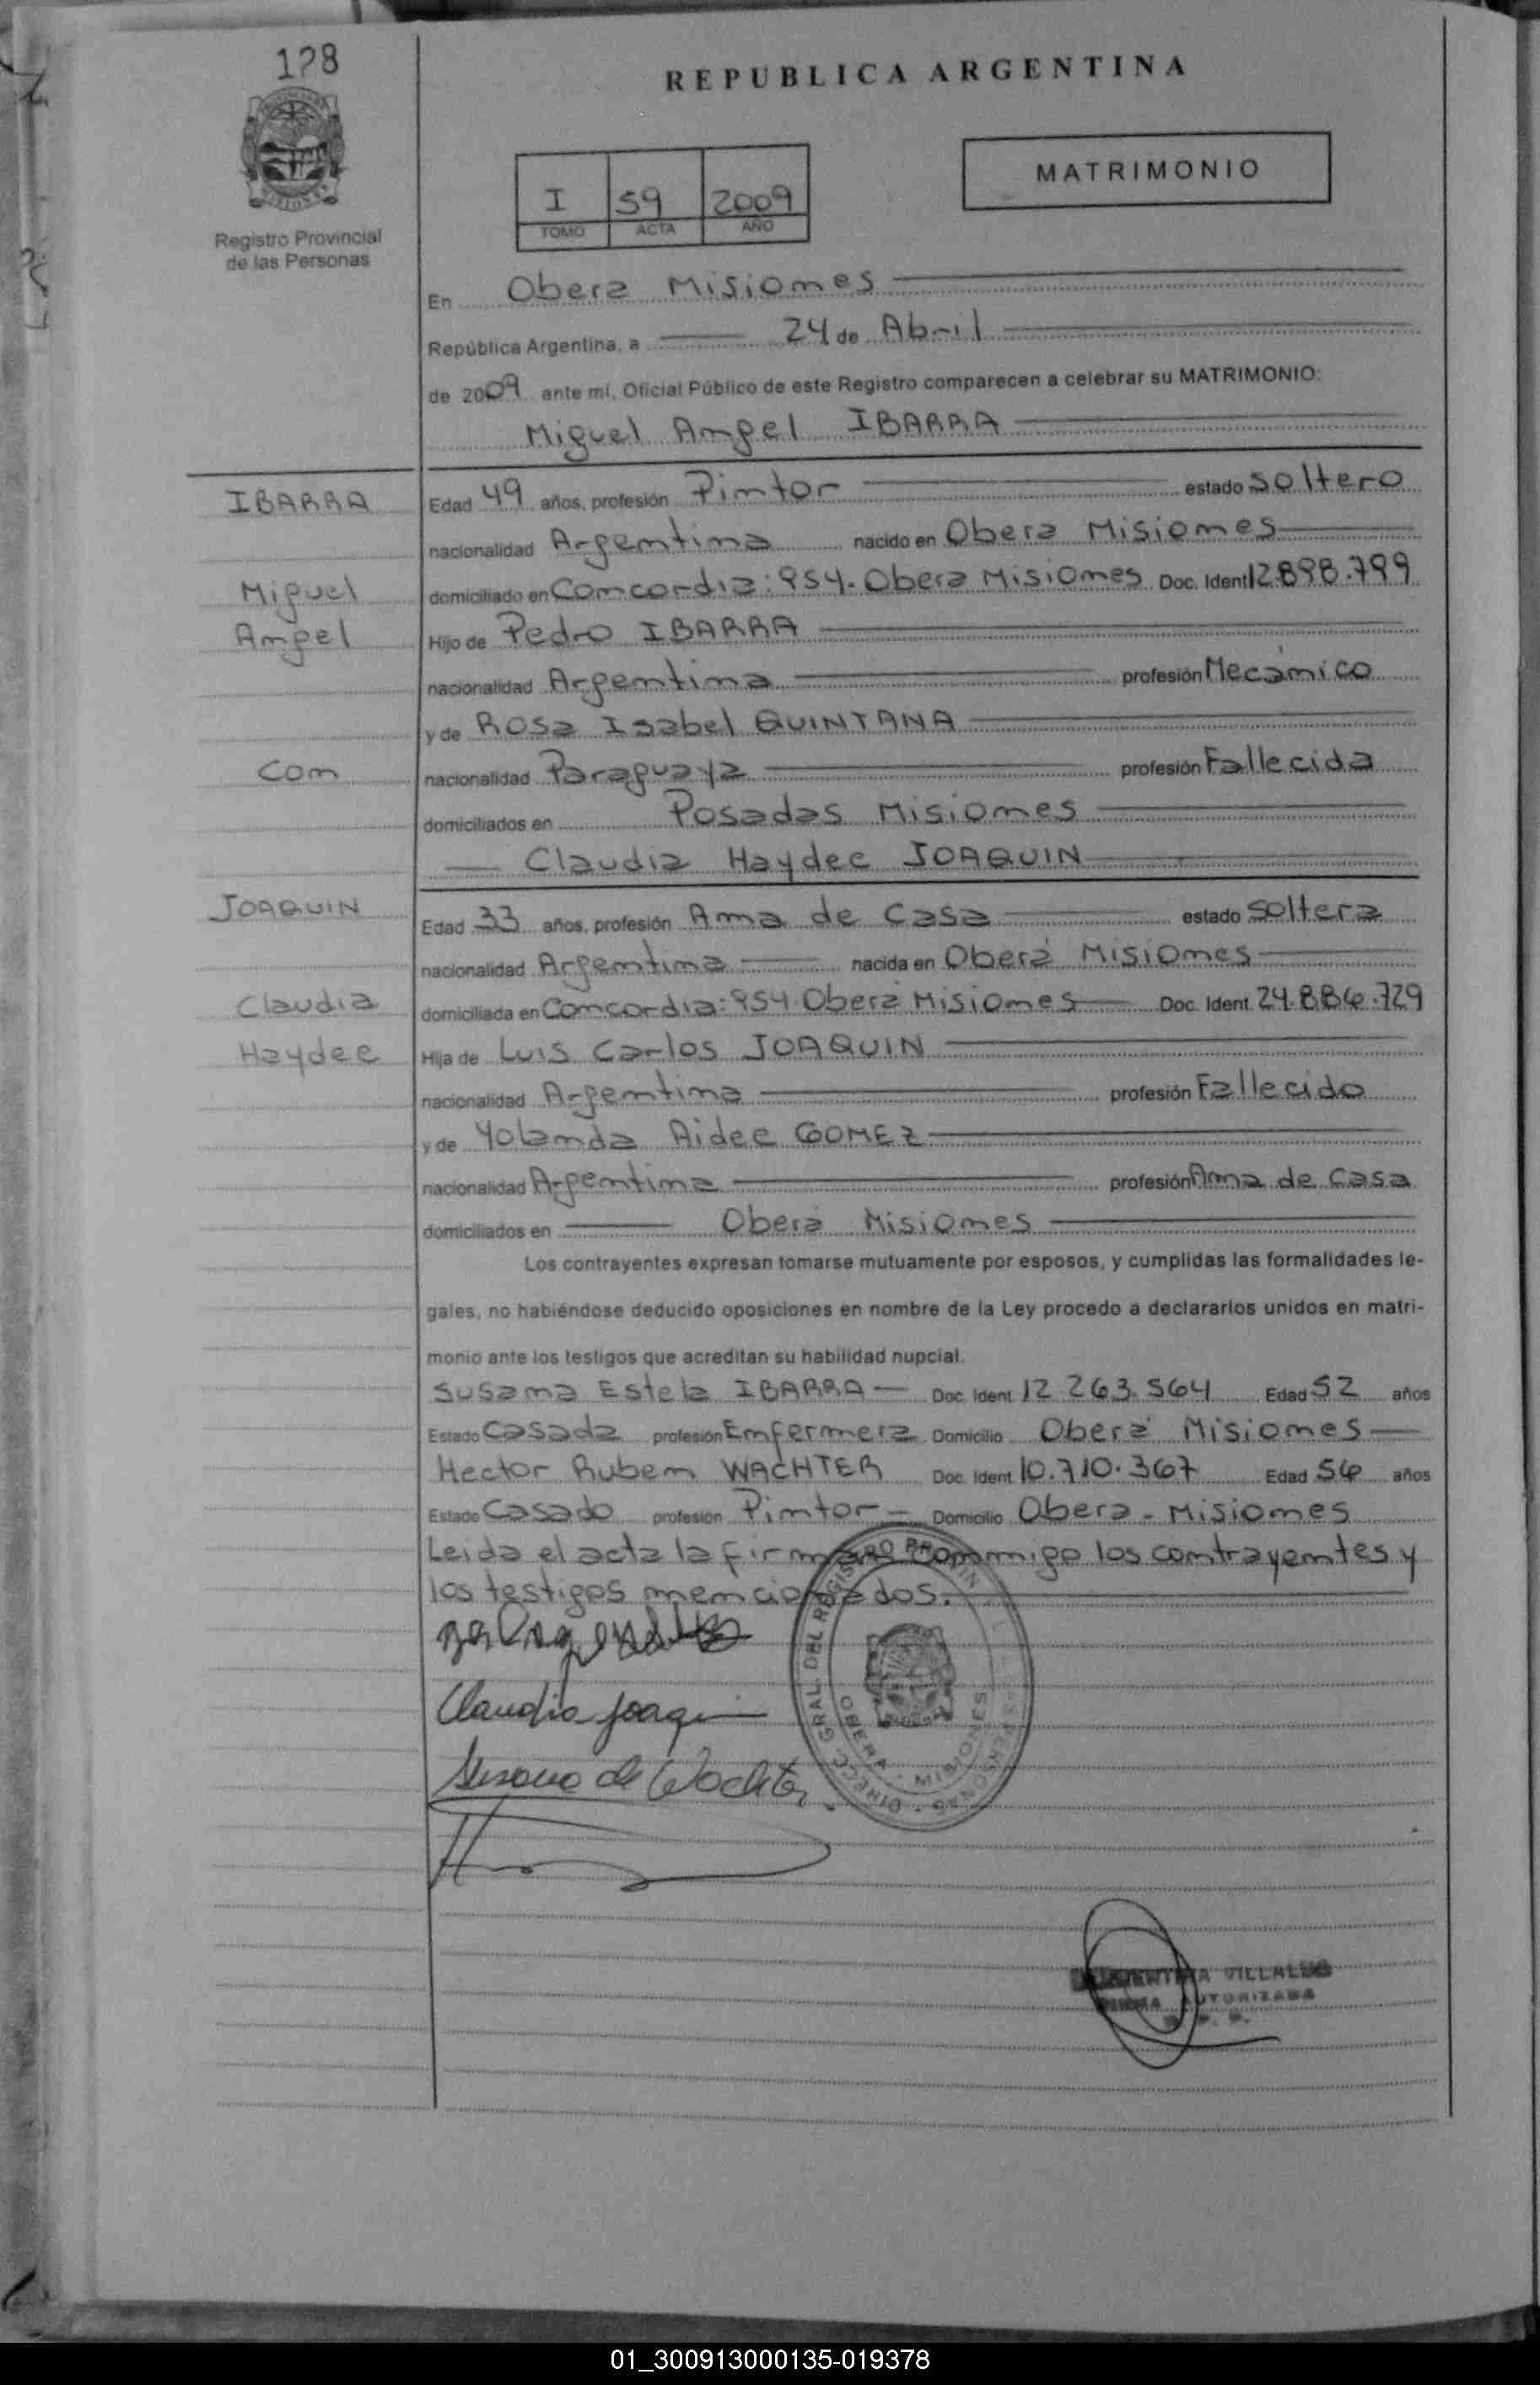 128
REPUBLICA ARGENTINA
MATRIMONIO
I 59 2009
TOMO ACTA AÑO
Registro Provincial
de las Personas
En Obera Misiones
República Argentina, a 24 de Abril
de 2009 ante mí, Oficial Público de este Registro comparecen a celebrar su MATRIMONIO:
Miguel Angel IBARRA
IBARRA
Edad 49 años, profesión Pintor estado Soltero
nacionalidad Argentina nacido en Obera Misiones
Miguel
domiciliado en Concordia: 954. Obera Misiones Doc. Ident 12.898.799
Angel
Hijo de Pedro IBARRA
nacionalidad Argentina profesión Mecánico
y de Rosa Isabel QUINTANA
Con
nacionalidad Paraguaya profesión Fallecida
domiciliados en Posadas Misiones
Claudia Haydee JOAQUIN
JOAQUIN
Edad 33 años, profesión Ama de Casa estado Soltera
nacionalidad Argentina nacida en Oberá Misiones
Claudia
domiciliada en Concordia: 954 Oberá Misiones Doc. Ident. 24.886.729
Haydee
Hija de Luis Carlos JOAQUIN
nacionalidad Argentina profesión Fallecido
y de Yolanda Aidee GOMEZ
nacionalidad Argentina profesión Ama de Casa
domiciliados en Oberá Misiones
Los contrayentes expresan tomarse mutuamente por esposos, y cumplidas las formalidades le-
gales, no habiéndose deducido oposiciones en nombre de la Ley procedo a declararlos unidos en matri-
monio ante los testigos que acreditan su habilidad nupcial.
Susana Estela IBARRA Doc. Ident 12.263.564 Edad 52 años
Estado Casada profesión Enfermera Domicilio Oberá Misiones
Hector Ruben WACHTER Doc. Ident 10.710.367 Edad 56 años
Estado Casado profesión Pintor Domicilio Obera - Misiones
Leida el acta la firman conmigo los contrayentes y
los testigos mencionados.
Claudia Joaquin
Susana de Wachter
DIRECC. GRAL. DEL REGISTRO PROVIN PERSONAS
OBERA - MISIONES
VILLALBA
FIRMA AUTORIZADA
01_300913000135-019378